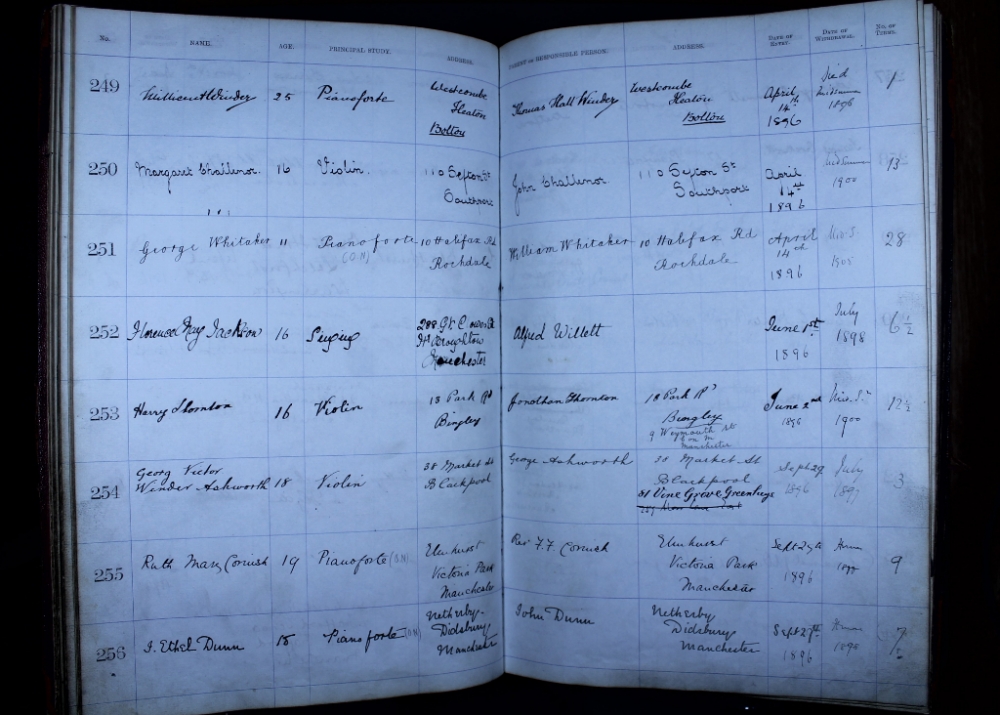 No. NAME. AGE. PRINCIPAL STUDY. ADDRESS. PARENT OR RESPONSIBLE PERSON. ADDRESS. DATE OF ENTRY. DATE OF WITHDRAWAL. No. OF TERMS.
249 Millicent Winder 25 Pianoforte Westcombe Thomas Hall Winder Westcombe April Died 1
Heaton Heaton 14th Midsummer
Bolton Bolton 1896 1896
250 Margaret Challinor. 16 Violin. 110 Sefton St John Challinor. 110 Sefton St April Midsummer 13
Southport Southport 14th 1900
1896
251 George Whitaker 11 Pianoforte 10 Halifax Rd William Whitaker 10 Halifax Rd April 28
(O.N) Rochdale Rochdale 14th
1896
252 Florence May Jackson 16 Singing 288 Gt Alfred Willett June 1st July 6 1/2
Hr Broughton 1896 1898
Manchester
253 Harry Thornton 16 Violin 18 Park Rd Jonathan Thornton 18 Park Rd June 2nd 12 1/2
Bingley Bingley 1896 1900
9 Weymouth St
C on M
Manchester
254 Georg Victor 38 Market St George Ashworth 38 Market St Sept 29 July 3
Winder Ashworth 18 Violin Blackpool Blackpool 1896 1897
31 Vine Grove Greenheys
255 Ruth Mary Cornish 19 Pianoforte (O.N) Elmhurst Rev F.F Cornish Elmhurst Sept 29th 9
Victoria Park Victoria Park 1896
Manchester Manchester
256 J. Ethel Dunn 18 Pianoforte (O.N) Netherby John Dunn Netherby Sept 29th 7
Didsbury Didsbury 1896 1898
Manchester Manchester